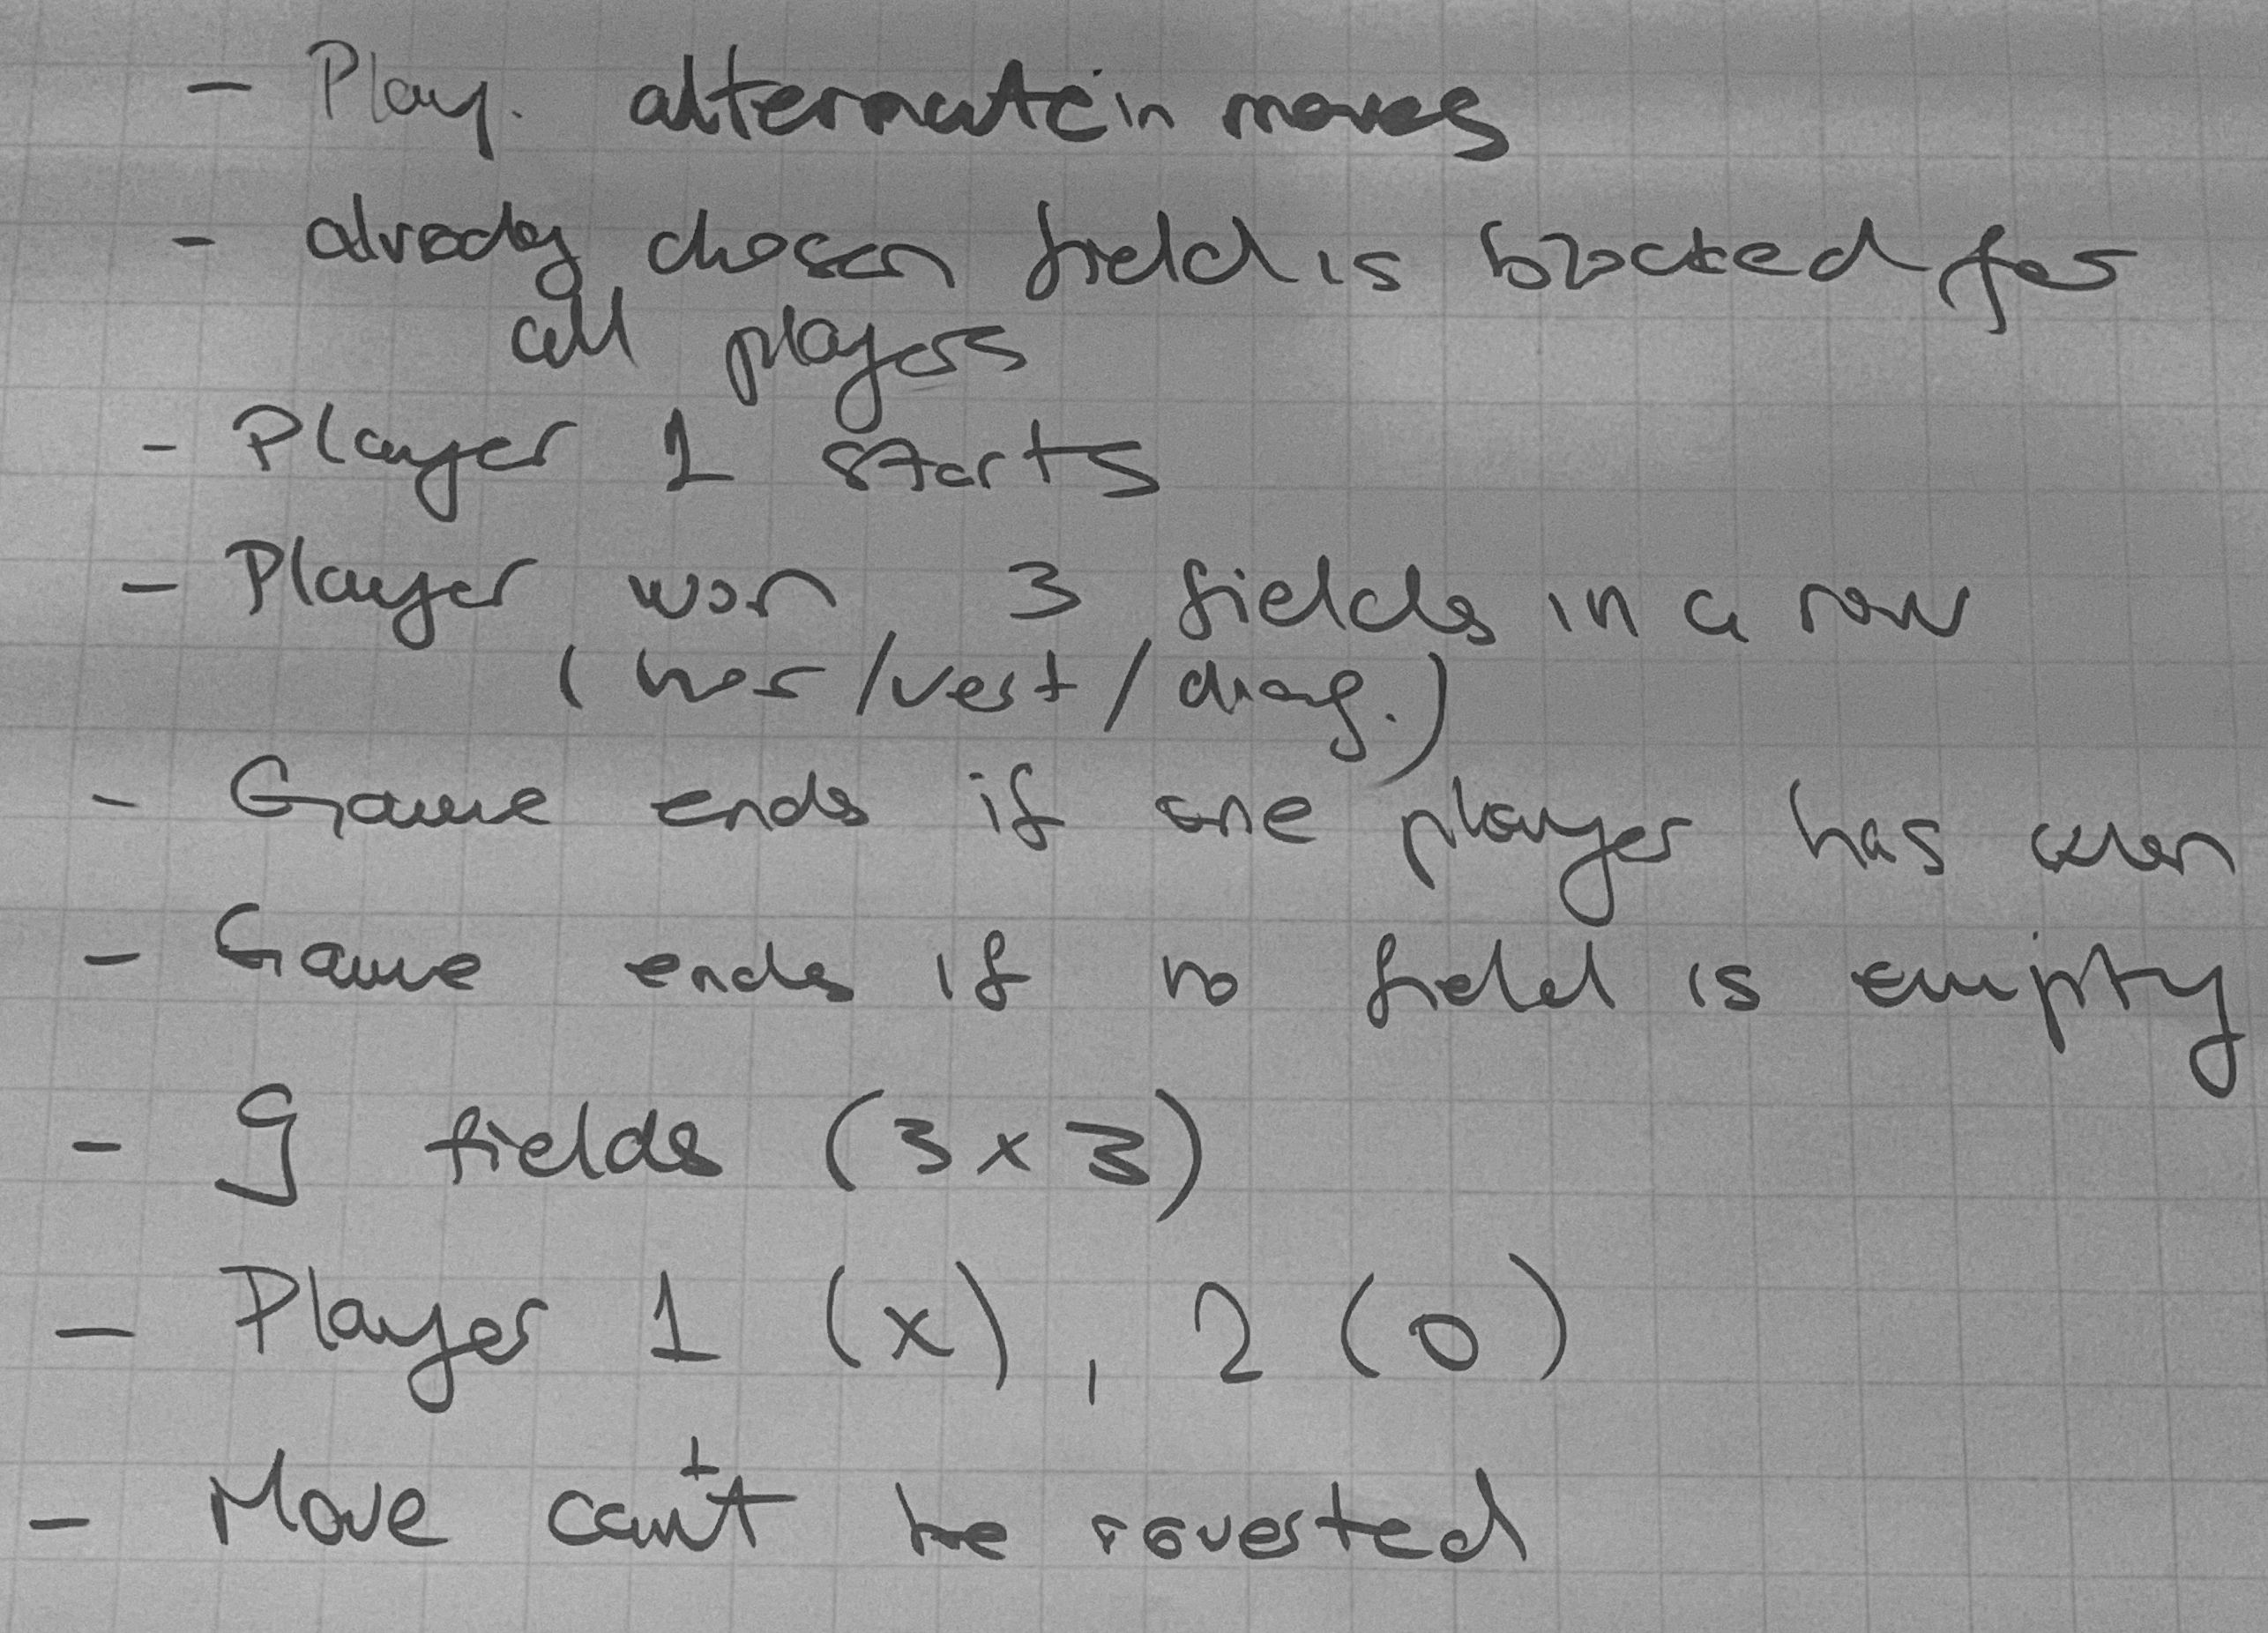 - Play. alternate in moves
- already chosen field is blocked for
all players
- Player 1 starts
- Player won 3 fields in a row
(hor/vert/diag.)
- Game ends if one player has won
- Game ends if no field is empty
- 9 fields (3x3)
- Player 1 (x), 2 (o)
- Move can't be reverted